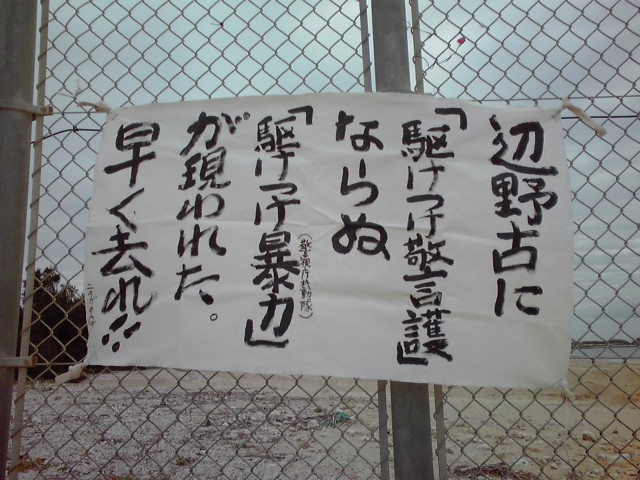 辺野古に
「駆けつけ警護」
ならぬ
「駆けつけ暴力」
(警視庁機動隊)
が現われた。
早く去れ!!